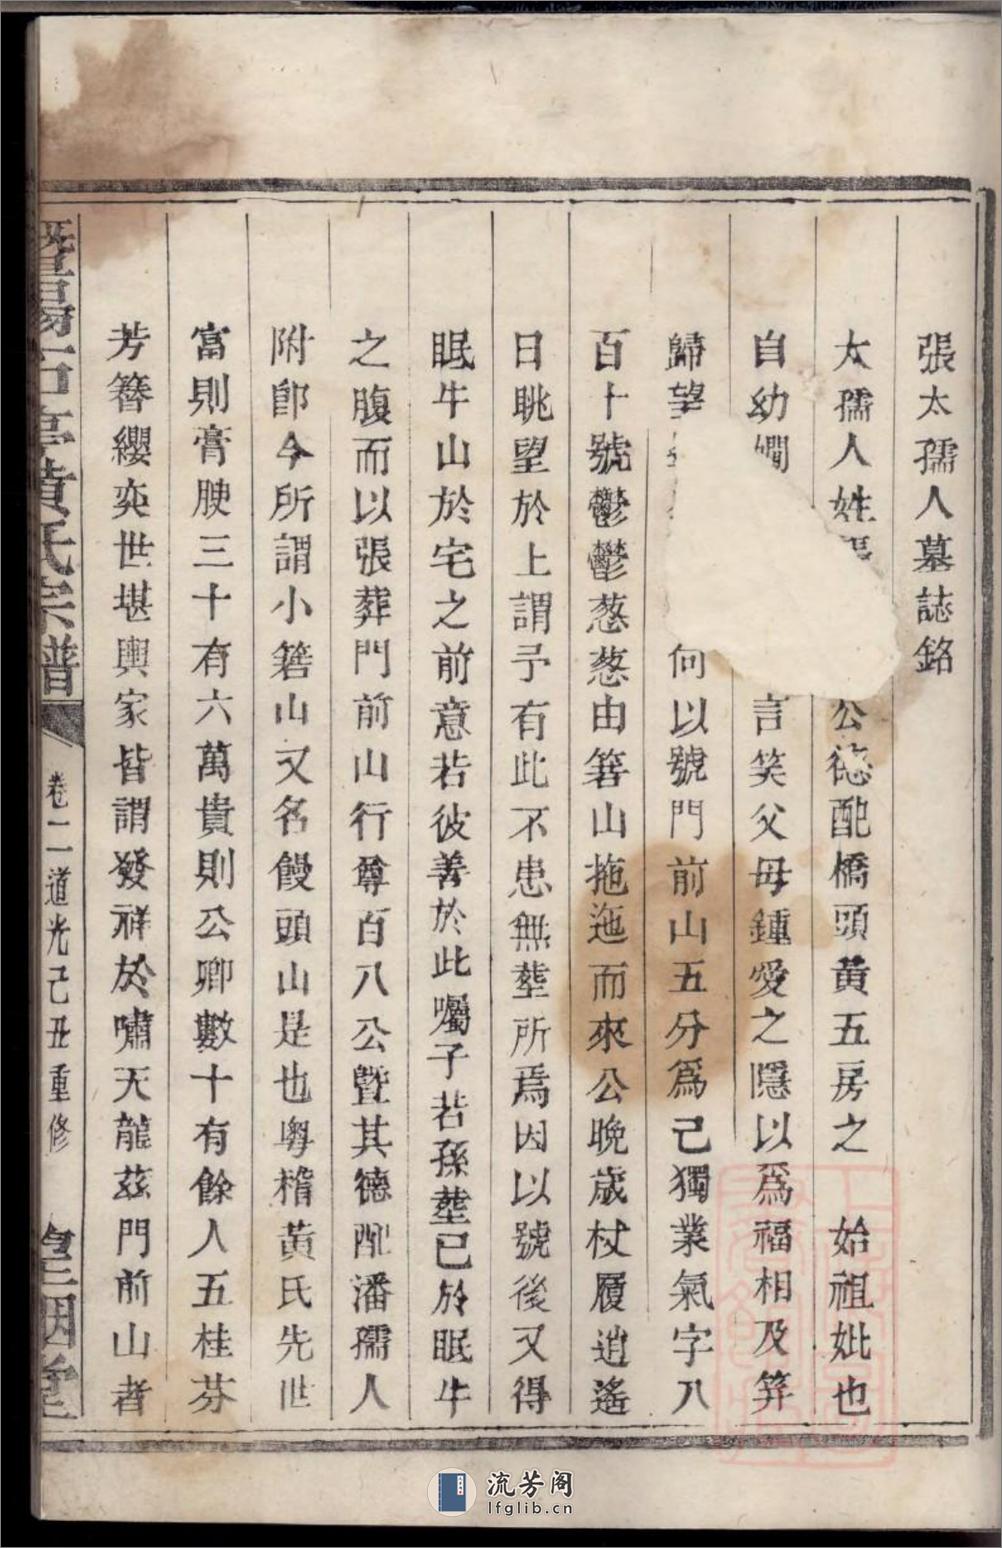 張太孺人墓誌銘
太孺人姓張公德配橋頭黄五房之　始祖妣也
自幼嫺言笑父母鍾愛之隱以為福相及笄
歸望何以號門前山五分為己獨業氣字八
百十號鬱鬱葱葱由箬山拖迤而來公晚歲杖履逍遙
日眺望於上謂予有此不患無塟所焉因以號後又得
眠牛山於宅之前意若彼善於此囑子若孫塟已於眠牛
之腹而以張葬門前山行尊百八公曁其德配潘孺人
附卽今所謂小箬山又名饅頭山是也粤稽黃氏先世
富則膏腴三十有六萬貴則公卿數十有餘人五桂芬
芳簪纓奕世堪輿家皆謂發祥於嘯天龍茲門前山者
暨陽石亭黄氏宗譜
卷二
道光己丑重修
堂
流芳阁
lfglib.cn